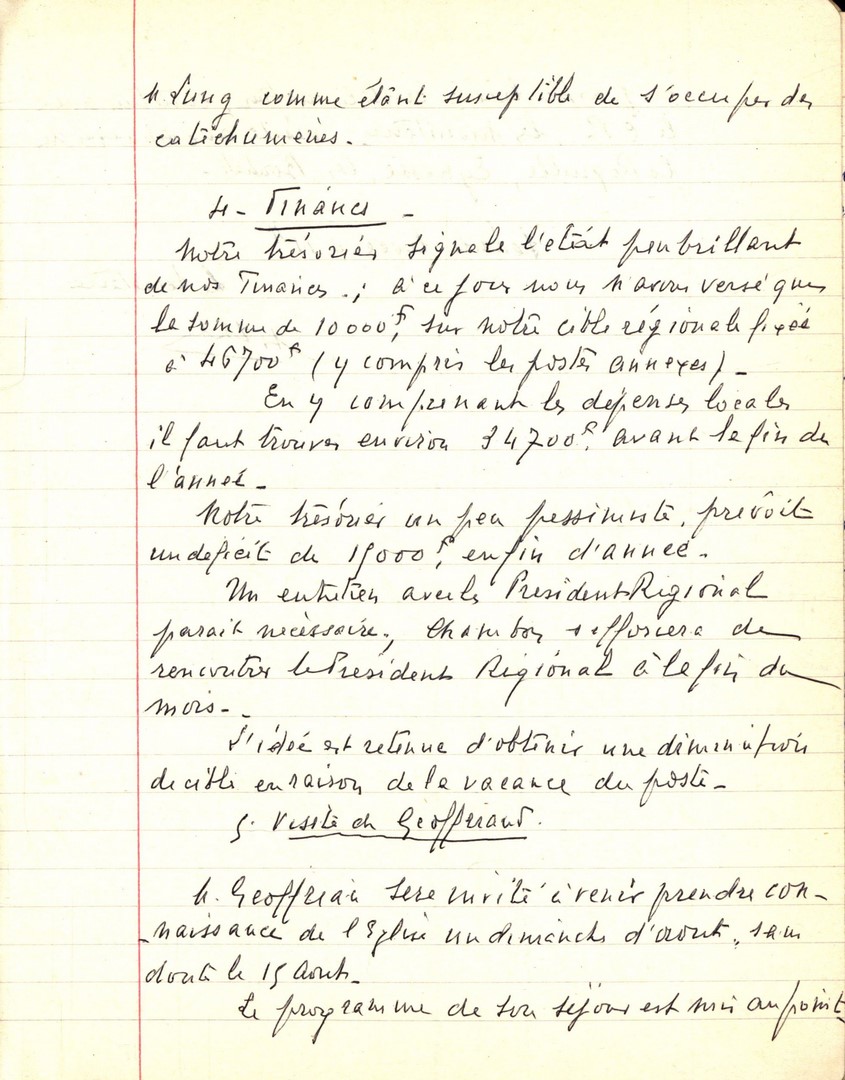 M. Lung comme étant susceptible de s'occuper des
catéchumènes.
4- Finances -
Notre trésorier signale l'état peu brillant
de nos Finances.; à ce jour nous n'avons versé que
la somme de 10000f, sur notre cible régionale fixée
à 46700f (y compris les postes annexes) -
En y comprenant les dépenses locales
il faut trouver environ 34700f. avant la fin de
l'année -
Notre trésorier un peu pessimiste, prévoit
un deficit de 15000f, en fin d'année -
Un entretien avec le President Régional
parait nécessaire; Chambon s'efforcera de
rencontrer le President Régional à la fin du
mois -
L'idée est retenue d'obtenir une diminution
de cible en raison de la vacance du poste -
5. Visite de Geoffriaud.
M. Geoffriau sera invité à venir prendre con-
-naissance de l'Eglise un dimanche d'aout, sans
doute le 15 Aout -
Le programme de son séjour est mis au point